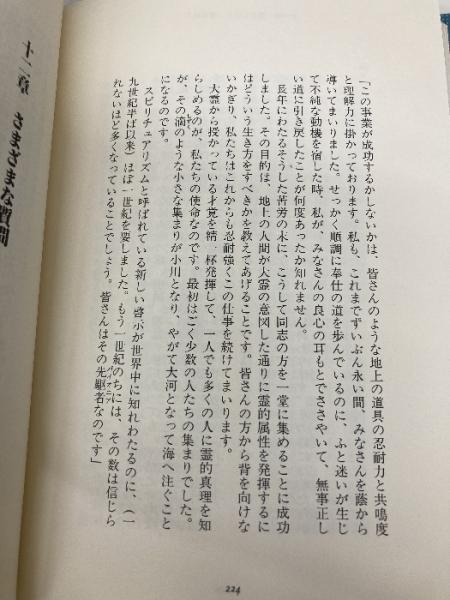 「この事業が成功するかしないかは、皆さんのような地上の道具の忍耐力と共鳴度
と理解力に掛かっております。私も、これまでずいぶん永い間、みなさんを蔭から
導いてまいりました。せっかく順調に奉仕の道を歩んでいるのに、ふと迷いが生じ
て不純な動機を宿した時、私が、みなさんの良心の耳もとでささやいて、無事正し
い道に引き戻したことが何度あったか知れません。
長年にわたるそうした苦労の末に、こうして同志の方を一堂に集めることに成功
しました。その目的は、地上の人間が大霊の意図した通りに霊的属性を発揮するに
はどういう生き方をすべきかを教えてあげることです。皆さんの方から背を向けな
いかぎり、私たちはこれからも忍耐強くこの仕事を続けてまいります。
大霊から授かっている才覚を精一杯発揮して、一人でも多くの人に霊的真理を知
らしめるのが、私たちの使命なのです。最初はごく少数の人たちの集まりでした。
が、その滴のような小さな集まりが小川となり、やがて大河となって海へ注ぐこと
になるのです。
スピリチュアリズムと呼ばれている新しい啓示が世界中に知れわたるのに、(一
九世紀半ば以来)ほぼ一世紀を要しました。もう一世紀のちには、その数は信じら
れないほど多くなっていることでしょう。皆さんはその先駆者なのです」
十二章 さまざまな質問
224